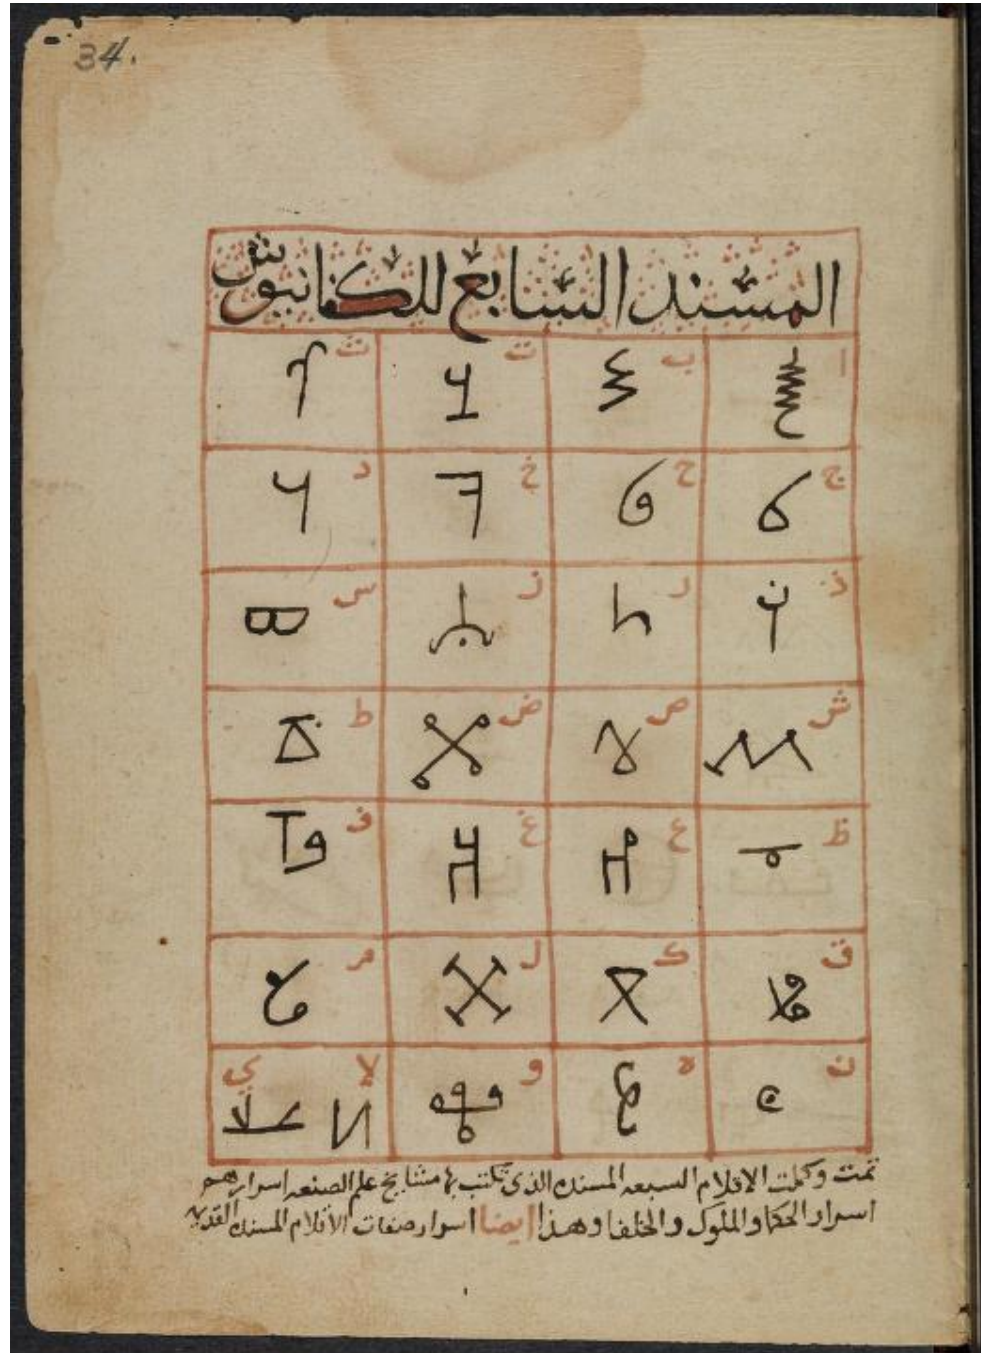 34.
المسند السابع للكفانيوش
ا ب ت ث
ج ح خ د
ذ ر ز س
ش ص ض ط
ظ ع غ ف
ق ك ل م
ن ه و لا ي
تمت وكملت الاقلام السبعه المسنده الذى تكتب بها مشايخ علم الصنعه اسرارهم
اسرار الحكما والملوك والخلفا وهذا ايضا اسرار صفات الاقلام المسنده القديمه